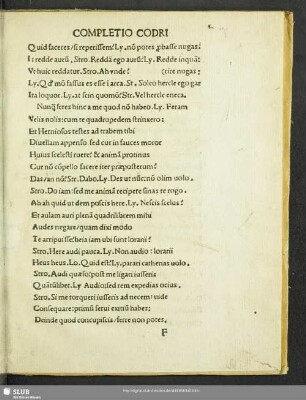 COMPLETIO CODRI
Quid faceres/si reperissem? Ly. nõ potes phasse nugas?
I: redde aurũ. Stro. Reddã ego aurũ? Ly. Redde inquã:
Vt huic reddatur. Stro. Ah vnde? nugas
Ita loquor. Ly. at scin quomõ? Str. Vel hercle eneca.
Nunq̃ feres hinc a me quod nõ habeo. Ly. Feram
Velis nolis: cum te quadrupedem strinxero:
Et Herniosos testes ad trabem tibi
Diuellam appenso. sed cur in fauces moror
Huius scelesti ruere? & animã protinus
Cur nõ cõpello facere iter præposterum?
Das/an nõ? Str. Dabo. Ly. Des ut nũc: nõ olim uolo.
Stro. Do iam: sed me animã recipere sinas te rogo.
Ah ah quid ut dem poscis here. Ly. Nescis scelus?
Et aulam auri plenã quadrilibrem mihi
Audes negare/quam dixi modo
Te arripuisse heis iam ubi sunt lorarii?
Stro. Here audi pauca. Ly. Non audio: lorarii
Heus heus. Lo. Quid est? Ly. parari cathenas uolo.
Stro. Audi quæso: post me ligari iusseris
Quãtũlibet. Ly Audio: sed rem expedias ocius.
Stro. Si me torqueri iusseris ad necem: uide
Consequare: primũ serui exitiũ habes:
Deinde quod concupiscis/ferre non potes.
F
SLUB